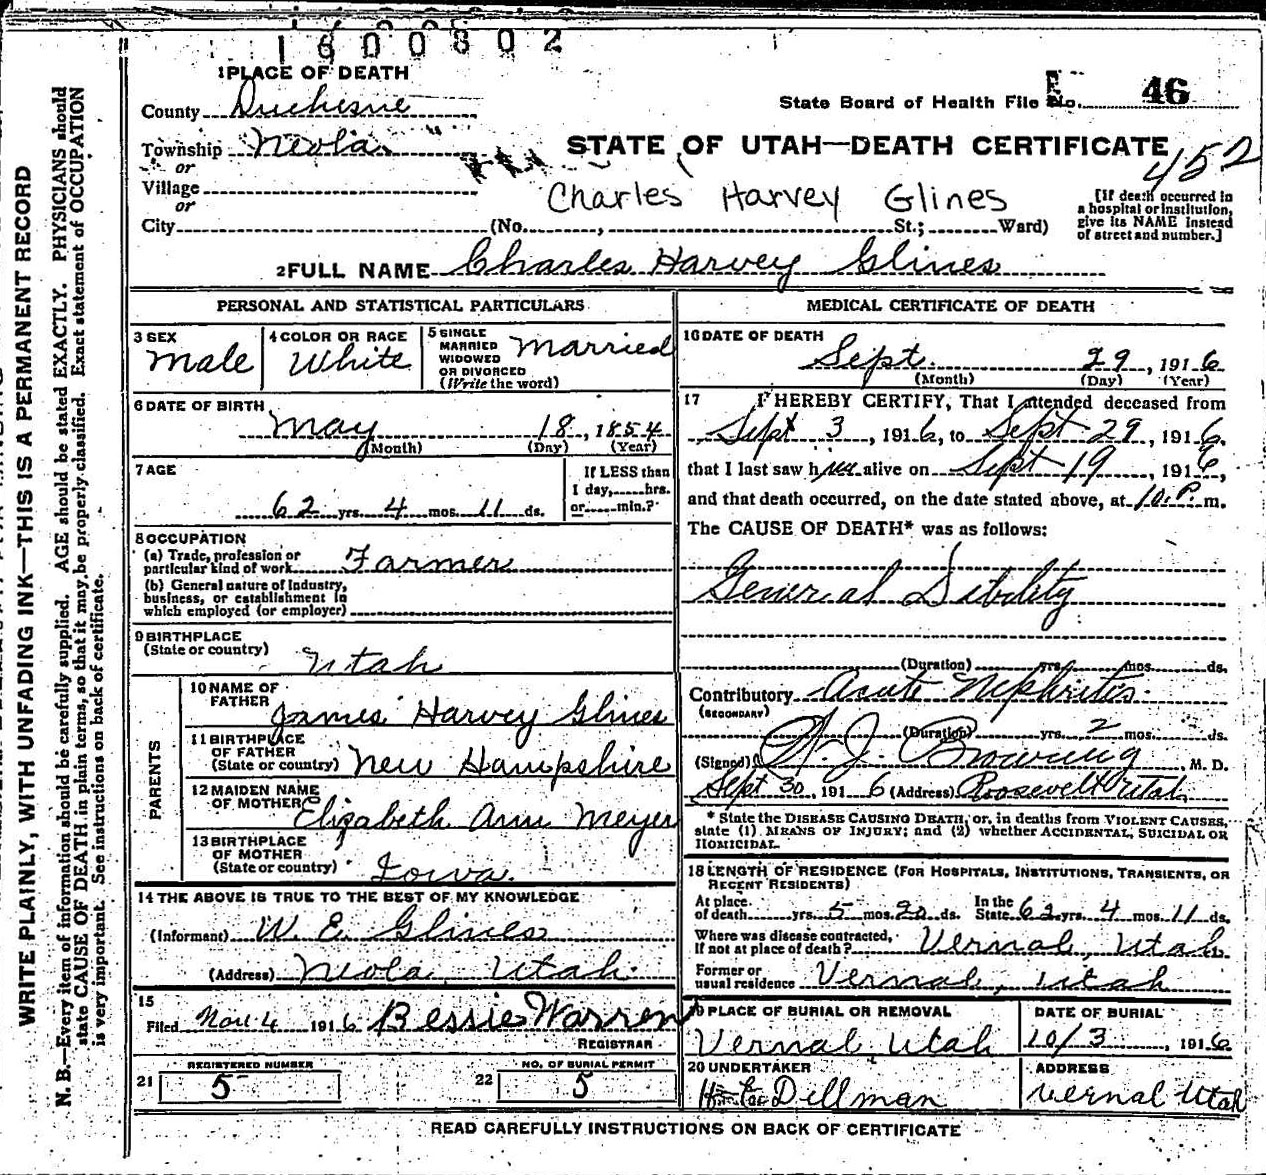 1600802
1 PLACE OF DEATH
County Duchesne
State Board of Health File No. 46
Township Neola
STATE OF UTAH—DEATH CERTIFICATE
452
or
Village
or
Charles Harvey Glines
[If death occurred in
a hospital or institution,
give its NAME instead
of street and number.]
City (No. , St.; Ward)
2 FULL NAME Charles Harvey Glines
PERSONAL AND STATISTICAL PARTICULARS
3 SEX
Male
4 COLOR OR RACE
White
5 SINGLE
MARRIED
WIDOWED
OR DIVORCED
(Write the word)
Married
6 DATE OF BIRTH
May 18, 1854
(Month) (Day) (Year)
7 AGE
62 yrs. 4 mos. 11 ds.
If LESS than
1 day, hrs.
or min.?
8 OCCUPATION
(a) Trade, profession or
particular kind of work Farmer
(b) General nature of Industry,
business, or establishment in
which employed (or employer)
9 BIRTHPLACE
(State or country)
Utah
PARENTS
10 NAME OF
FATHER
James Harvey Glines
11 BIRTHPLACE
OF FATHER
(State or country) New Hampshire
12 MAIDEN NAME
OF MOTHER Elizabeth Ann Meyer
13 BIRTHPLACE
OF MOTHER
(State or country) Iowa.
14 THE ABOVE IS TRUE TO THE BEST OF MY KNOWLEDGE
(Informant) W. E. Glines
(Address) Neola, Utah.
15
Filed Nov 4 1916 Bessie Warren
REGISTRAR
REGISTERED NUMBER
21 5
NO. OF BURIAL PERMIT
22 5
MEDICAL CERTIFICATE OF DEATH
16 DATE OF DEATH
Sept. 29, 1916
(Month) (Day) (Year)
17 I HEREBY CERTIFY, That I attended deceased from
Sept 3, 1916, to Sept 29, 1916.
that I last saw him alive on Sept 19, 1916,
and that death occurred, on the date stated above, at 10 P. m.
The CAUSE OF DEATH* was as follows:
General Debility
(Duration) yrs. mos. ds.
Contributory Acute Nephrites.
(SECONDARY)
(Duration) yrs. 2 mos. ds.
(Signed) J. Browning, M. D.
Sept 30, 1916 (Address) Roosevelt Utah
* State the DISEASE CAUSING DEATH, or, in deaths from VIOLENT CAUSES,
state (1) MEANS OF INJURY; and (2) whether ACCIDENTAL, SUICIDAL OR
HOMICIDAL.
18 LENGTH OF RESIDENCE (FOR HOSPITALS, INSTITUTIONS, TRANSIENTS, OR
RECENT RESIDENTS)
At place
of death yrs. 5 mos. 20 ds.
In the
State 62 yrs. 4 mos. 11 ds.
Where was disease contracted,
If not at place of death? Vernal, Utah
Former or
usual residence Vernal, Utah
19 PLACE OF BURIAL OR REMOVAL
Vernal Utah
DATE OF BURIAL
10/3, 1916
20 UNDERTAKER
Dillman
ADDRESS
Vernal Utah
READ CAREFULLY INSTRUCTIONS ON BACK OF CERTIFICATE
WRITE PLAINLY, WITH UNFADING INK—THIS IS A PERMANENT RECORD
N. B.—Every item of information should be carefully supplied. AGE should be stated EXACTLY. PHYSICIANS should
state CAUSE OF DEATH in plain terms, so that it may be properly classified. Exact statement of OCCUPATION
is very important. See instructions on back of certificate.